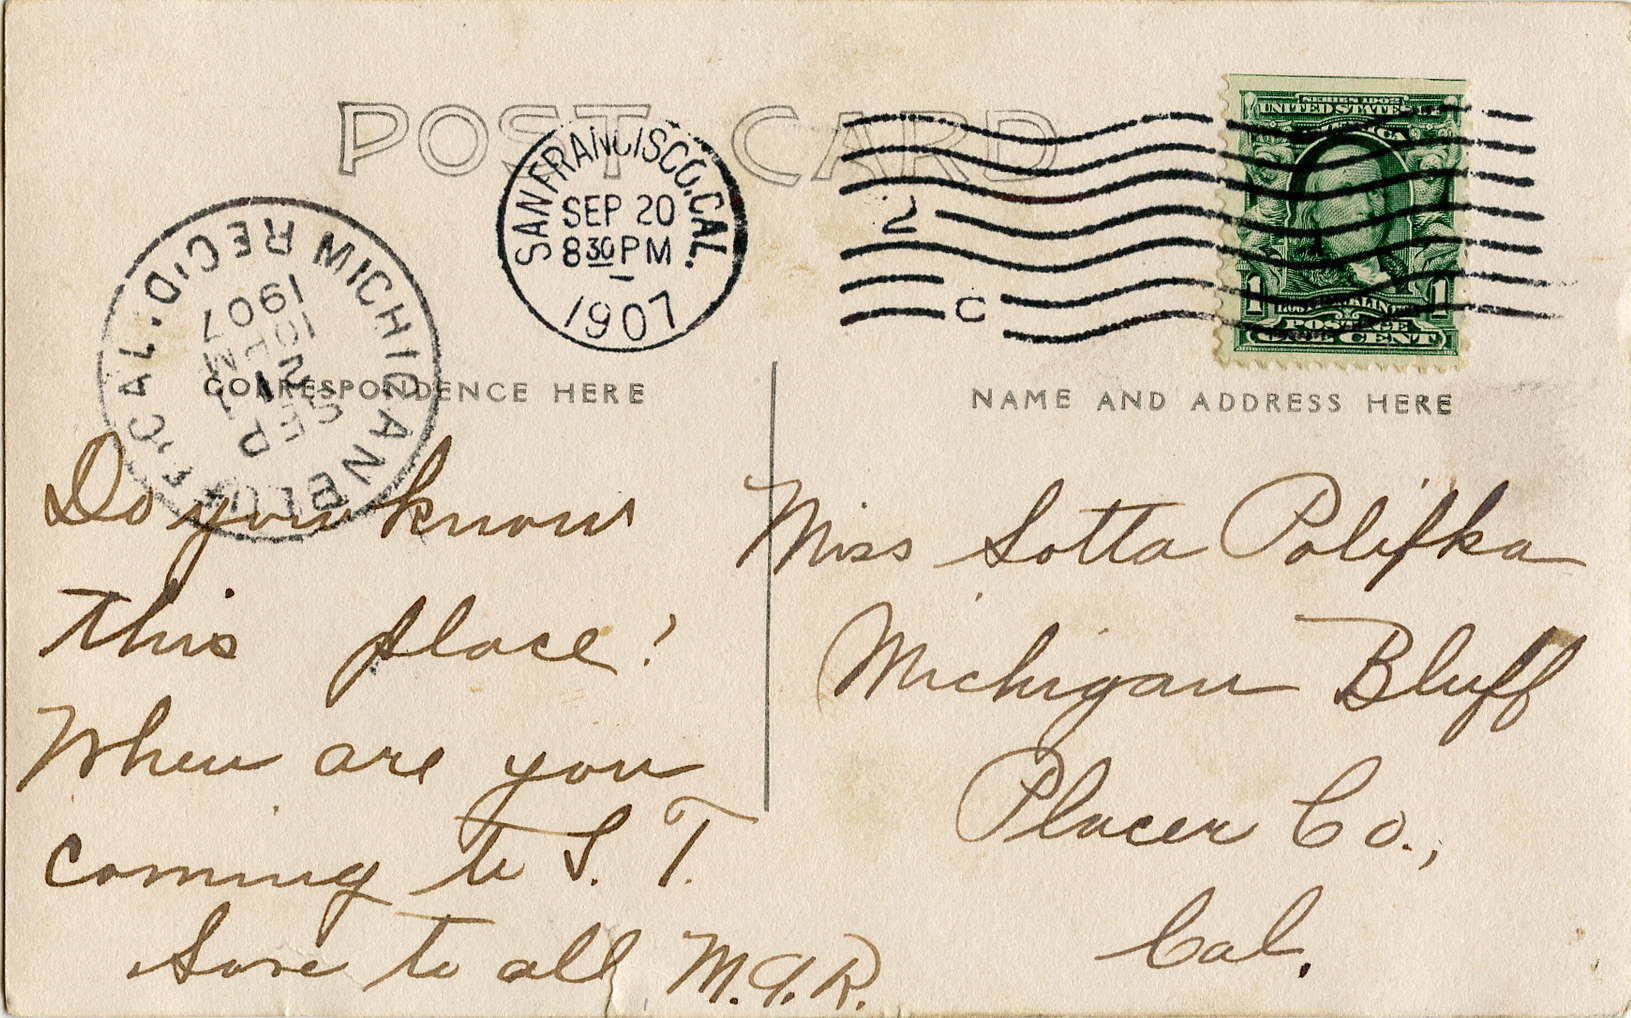 POST CARD
SAN FRANCISCO, CAL.
SEP 20
8 30 PM
1907
2
C
SERIES 1902
UNITED STATES OF
AMERICA
1 1
POSTAGE
ONE CENT
MICHIGAN BLUFF, CAL. REC'D.
SEP
21
10 PM
1907
CORRESPONDENCE HERE
NAME AND ADDRESS HERE
Do you know
this place?
When are you
coming to S. F.
Love to all M.
Miss Lotta Polifka
Michigan Bluff
Placer Co.,
Cal.